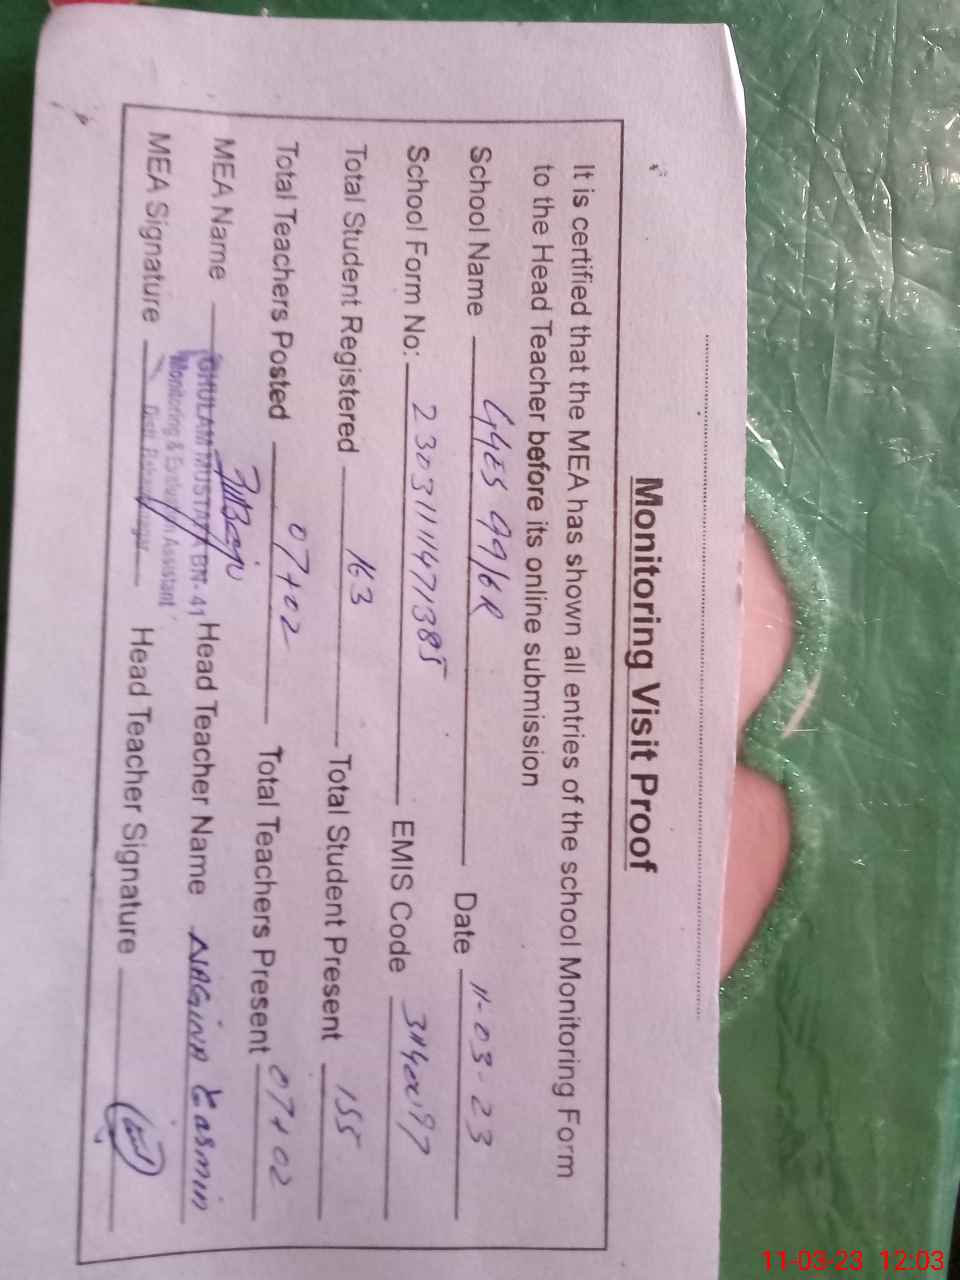 Monitoring Visit Proof
It is certified that the MEA has shown all entries of the school Monitoring Form
to the Head Teacher before its online submission
School Name GGES 99/6R Date 11-03-23
School Form No: 2303111471385 EMIS Code
Total Student Registered 163 Total Student Present 155
Total Teachers Posted 07+02 Total Teachers Present 07+02
MEA Name GHULAM MUSTAFA BN-41 Head Teacher Name NAGINA Yasmin
Monitoring & Evaluation Assistant
MEA Signature Distt. Head Teacher Signature
11-03-23 12:03